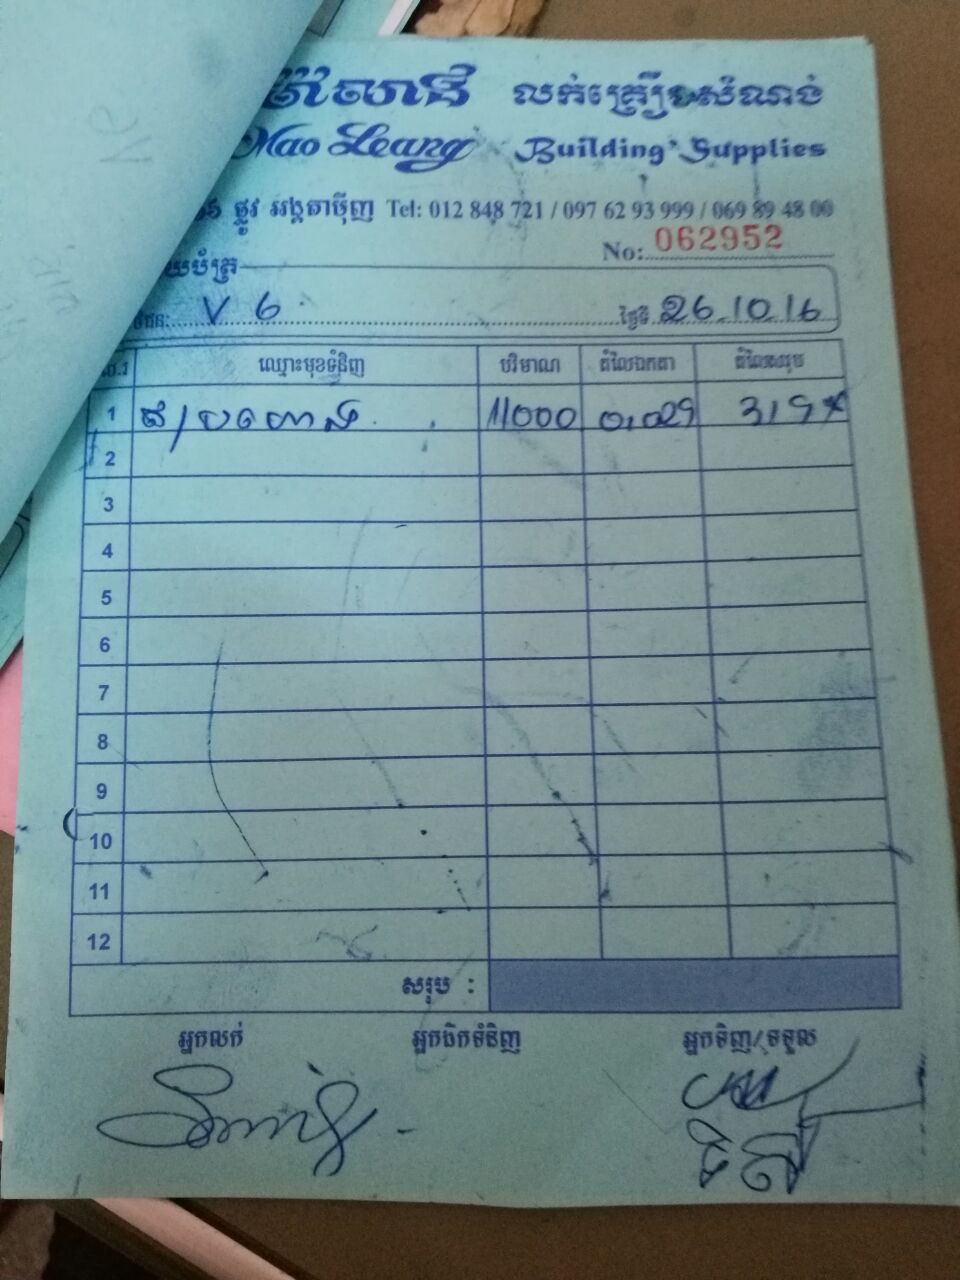 លក់គ្រឿងសំណង់
Mao Leang Building Supplies
ផ្លូវ អង្គតាម៉ិញ Tel: 012 848 721 / 097 62 93 999 / 069 89 48 00
No: 062952
V 6 ថ្ងៃទី 26.10.16
ឈ្មោះមុខទំនិញ បរិមាណ តំលៃឯកតា តំលៃសរុប
1 ឥ/ប្រហោង 11000 0,029 319
2
3
4
5
6
7
8
9
10
11
12
សរុប :
អ្នកលក់ អ្នកដឹកទំនិញ អ្នកទិញ/ទទួល